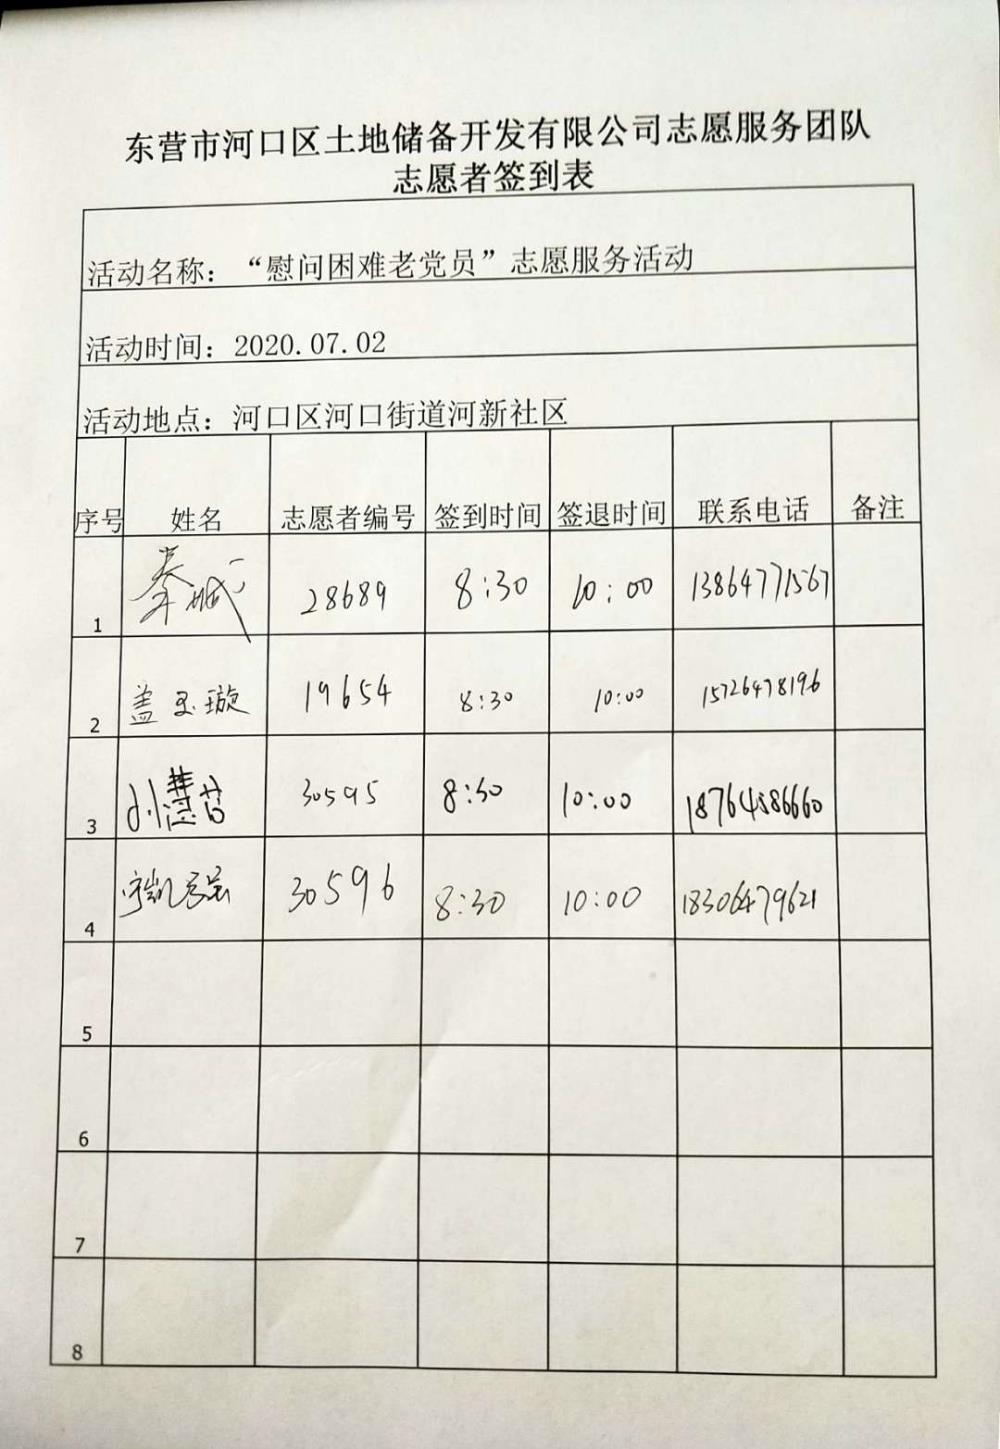 东营市河口区土地储备开发有限公司志愿服务团队
志愿者签到表
活动名称：“慰问困难老党员”志愿服务活动
活动时间：2020.07.02
活动地点：河口区河口街道河新社区
序号 姓名 志愿者编号 签到时间 签退时间 联系电话 备注
1 秦城 28689 8:30 10:00 13864771567
2 盖玉璇 19654 8:30 10:00 15726478196
3 刘慧苔 30595 8:30 10:00 18764586660
4 30596 8:30 10:00 18306479621
5
6
7
8